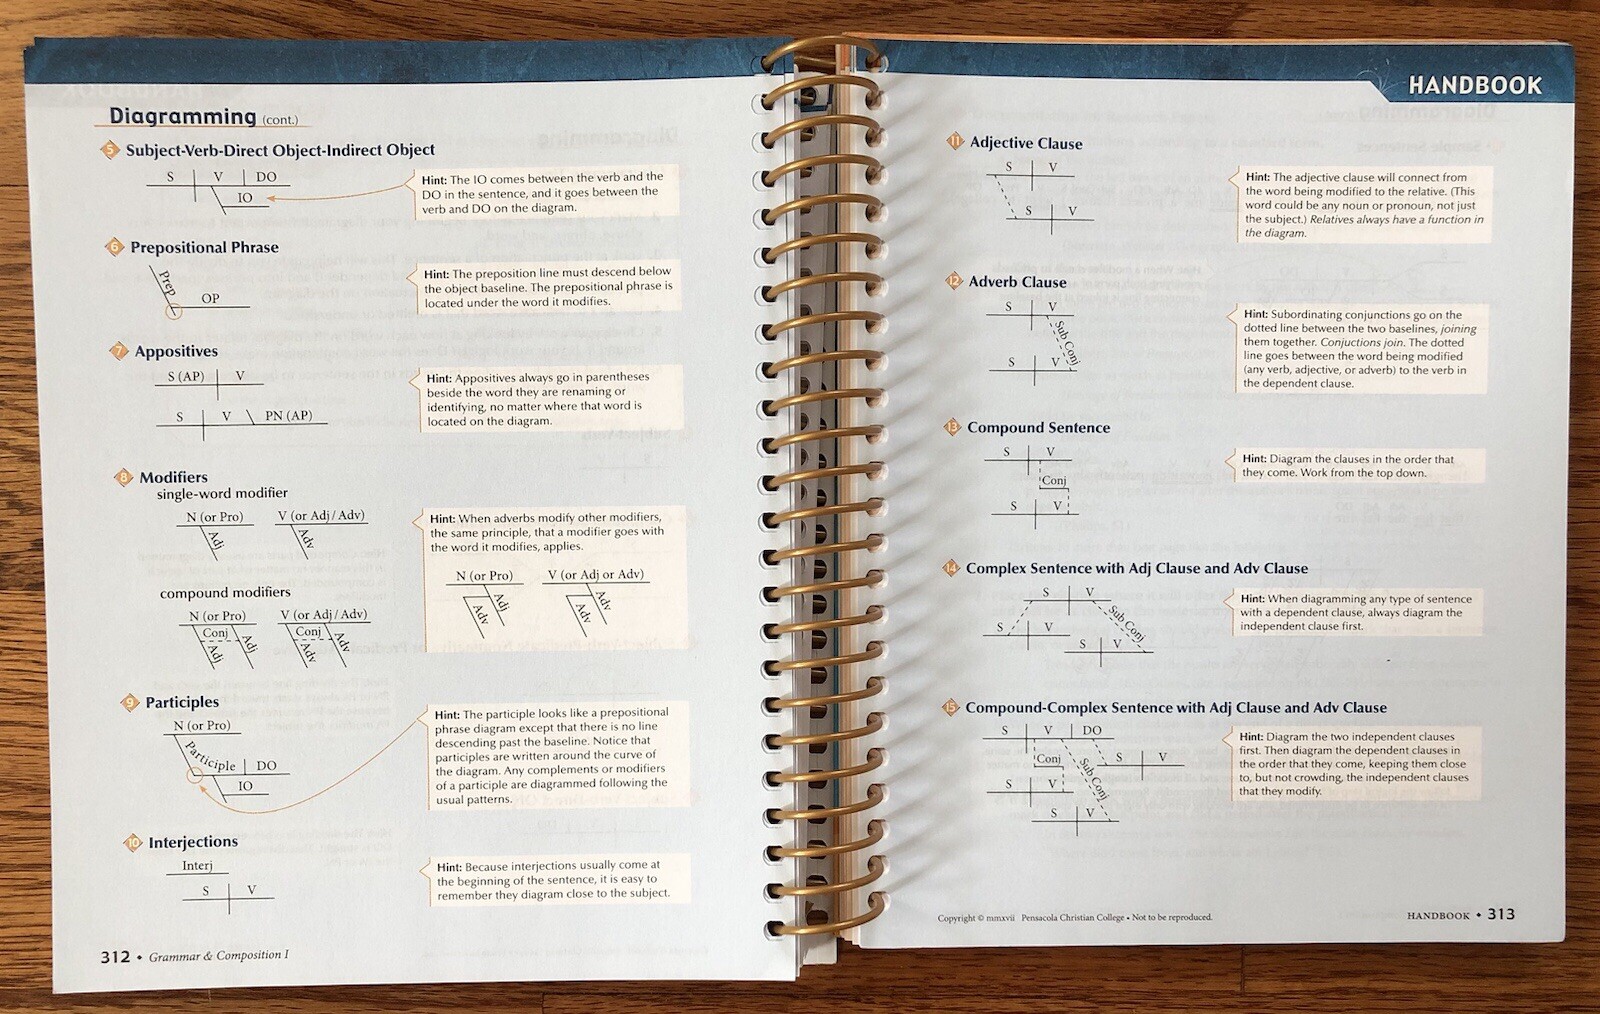 Diagramming (cont.)
5 Subject-Verb-Direct Object-Indirect Object
S V DO
IO
Hint: The IO comes between the verb and the
DO in the sentence, and it goes between the
verb and DO on the diagram.
6 Prepositional Phrase
Prep
OP
Hint: The preposition line must descend below
the object baseline. The prepositional phrase is
located under the word it modifies.
7 Appositives
S (AP) V
S V PN (AP)
Hint: Appositives always go in parentheses
beside the word they are renaming or
identifying, no matter where that word is
located on the diagram.
8 Modifiers
single-word modifier
N (or Pro) V (or Adj/Adv)
Adj Adv
compound modifiers
N (or Pro) V (or Adj/Adv)
Conj Conj
Adj Adj Adv Adv
Hint: When adverbs modify other modifiers,
the same principle, that a modifier goes with
the word it modifies, applies.
N (or Pro) V (or Adj or Adv)
Adv Adj Adv Adv
9 Participles
N (or Pro)
Participle DO
IO
Hint: The participle looks like a prepositional
phrase diagram except that there is no line
descending past the baseline. Notice that
participles are written around the curve of
the diagram. Any complements or modifiers
of a participle are diagrammed following the
usual patterns.
10 Interjections
Interj
S V
Hint: Because interjections usually come at
the beginning of the sentence, it is easy to
remember they diagram close to the subject.
312 • Grammar & Composition I
HANDBOOK
11 Adjective Clause
S V
S V
Hint: The adjective clause will connect from
the word being modified to the relative. (This
word could be any noun or pronoun, not just
the subject.) Relatives always have a function in
the diagram.
12 Adverb Clause
S V
Sub Conj
S V
Hint: Subordinating conjunctions go on the
dotted line between the two baselines, joining
them together. Conjuctions join. The dotted
line goes between the word being modified
(any verb, adjective, or adverb) to the verb in
the dependent clause.
13 Compound Sentence
S V
Conj
S V
Hint: Diagram the clauses in the order that
they come. Work from the top down.
14 Complex Sentence with Adj Clause and Adv Clause
S V
Sub Conj
S V
S V
Hint: When diagramming any type of sentence
with a dependent clause, always diagram the
independent clause first.
15 Compound-Complex Sentence with Adj Clause and Adv Clause
S V DO
Conj Sub Conj S V
S V
S V
Hint: Diagram the two independent clauses
first. Then diagram the dependent clauses in
the order that they come, keeping them close
to, but not crowding, the independent clauses
that they modify.
Copyright © mmxvii Pensacola Christian College • Not to be reproduced.
HANDBOOK • 313